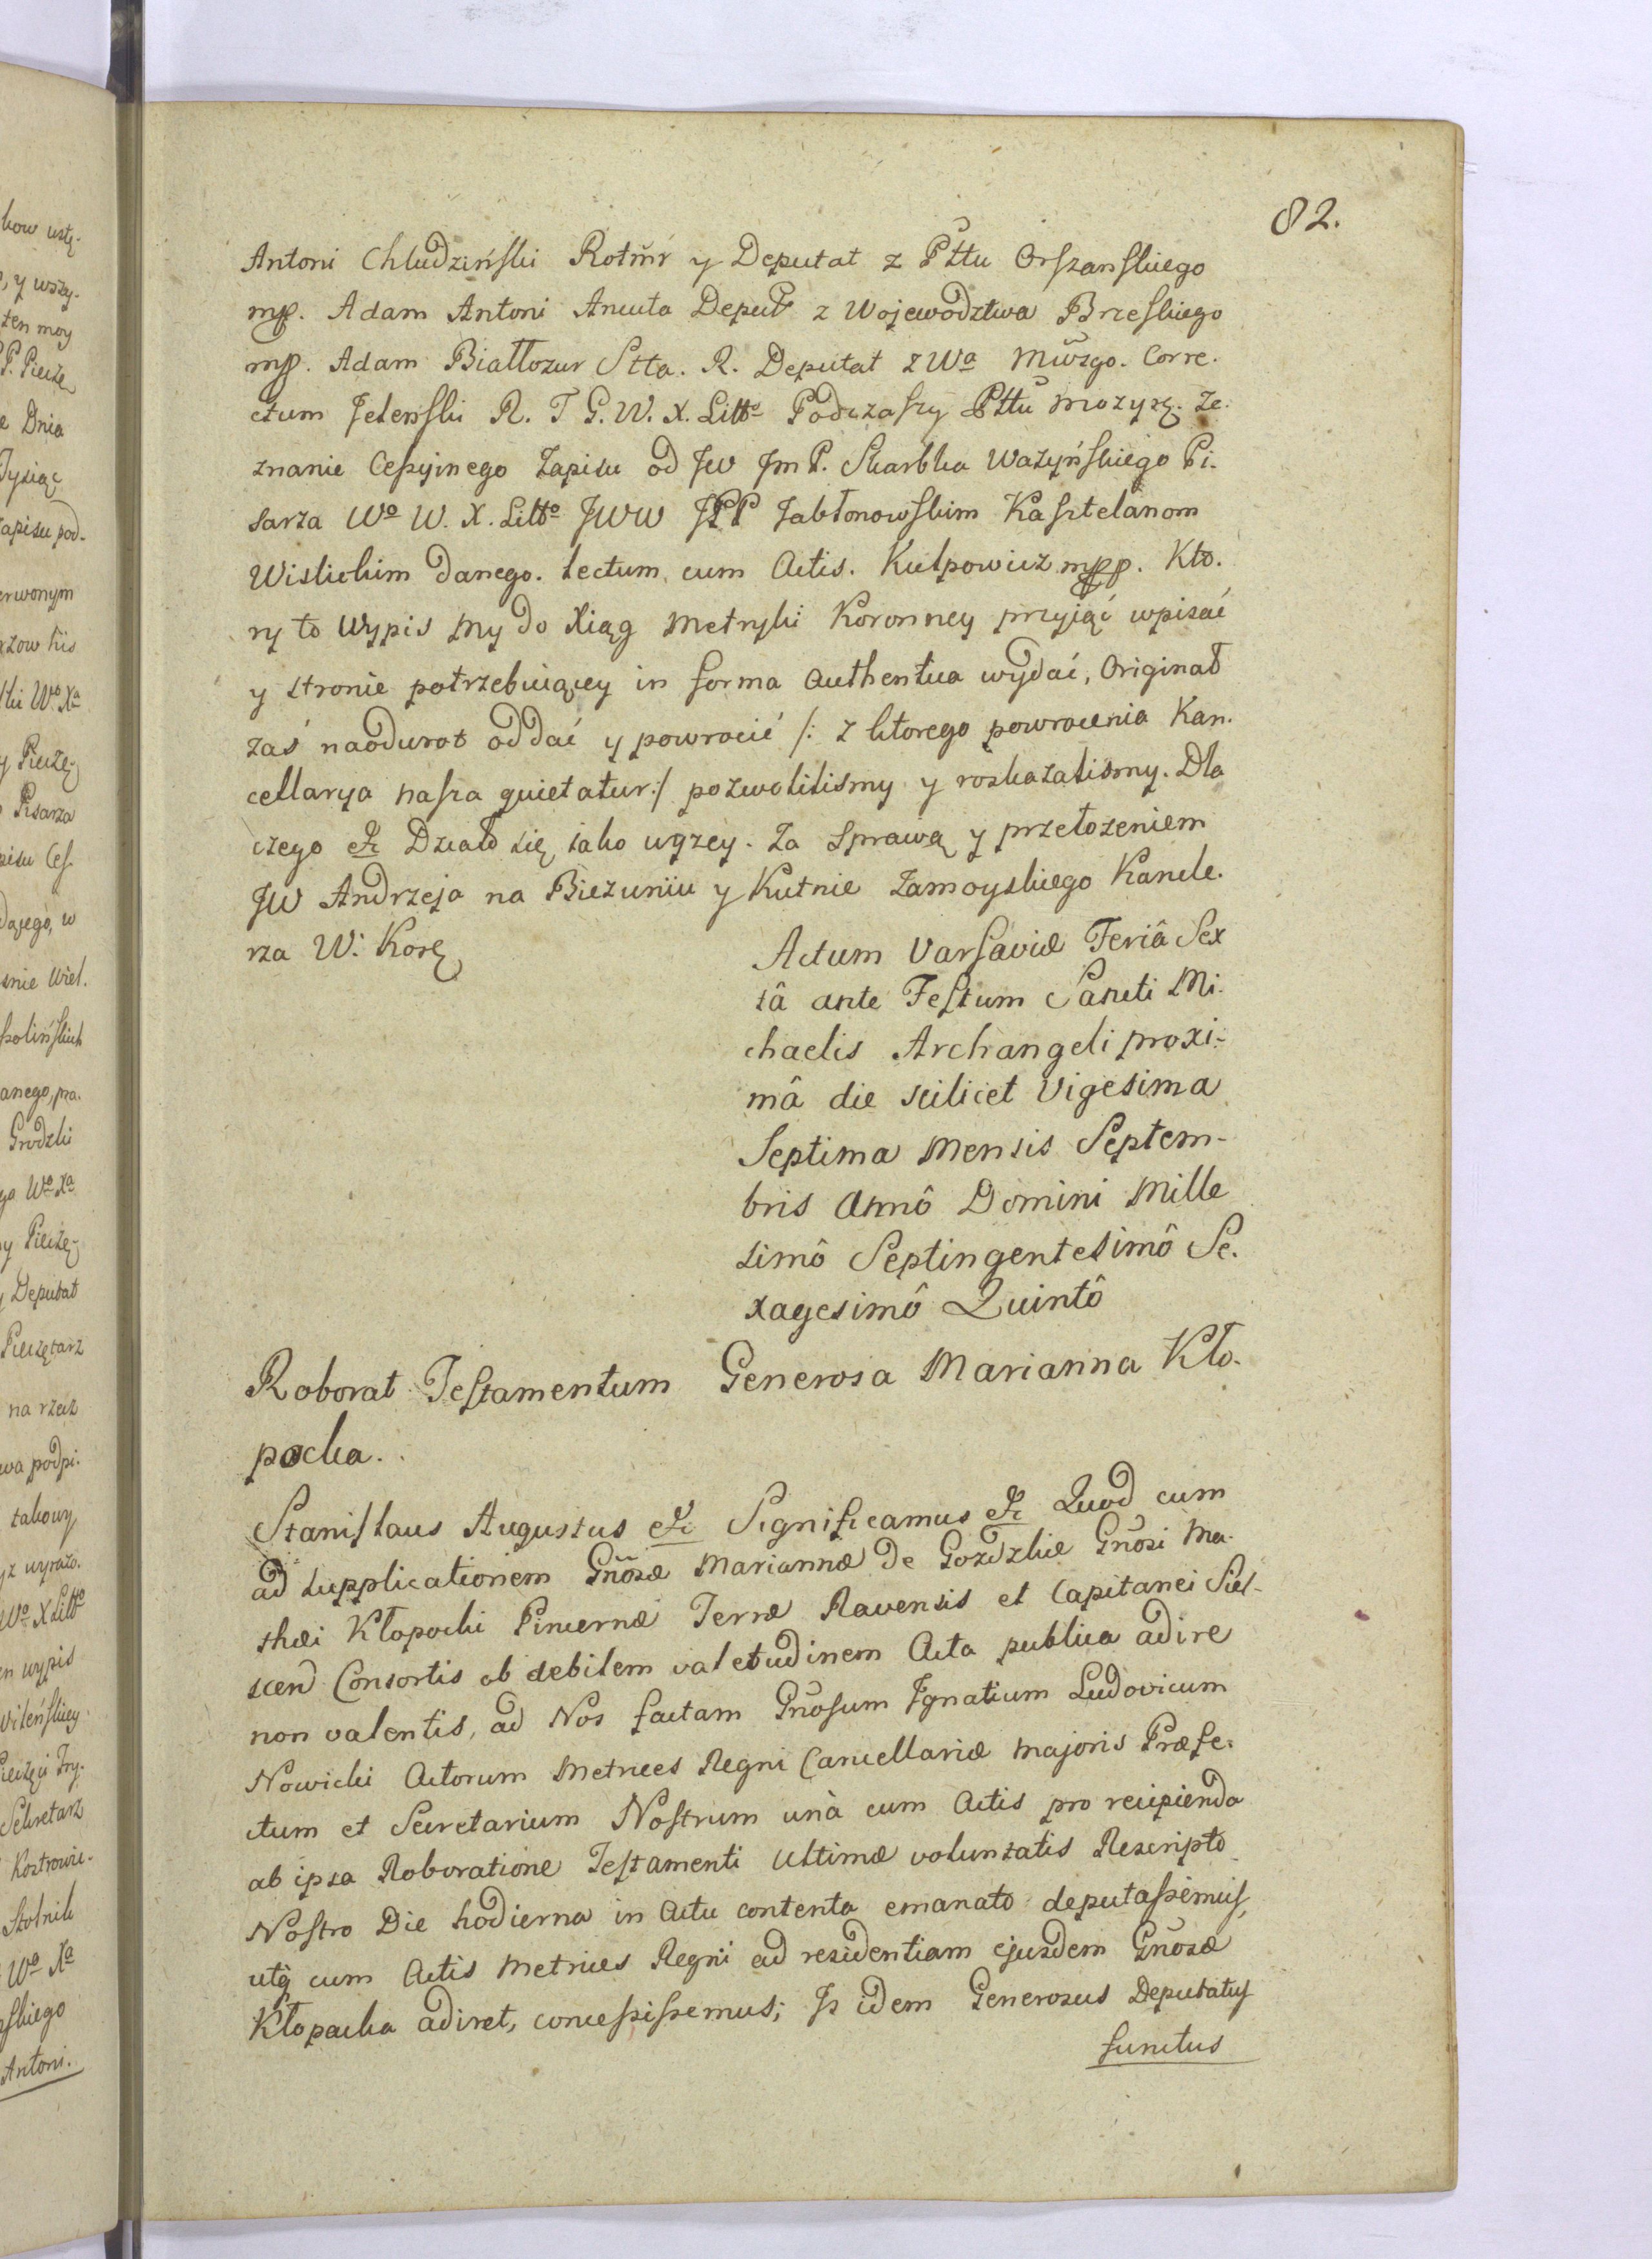 82.
Antoni Chludzinski Rotmr y Deputat z Pttu Orszanskiego
mp. Adam Antoni Ancuta Deput z Wojewodztwa Brzeskiego
mp. Adam Białłozur Stta. R. Deputat z Wa Mwzgo. Corre.
ctum Jelenski R. T G. W. X. Litto Podczaszy Pttu Mozyrz. Ze.
znanie Cessyinego Zapisu od JW JmP. Skarbka Ważynskiego Pi.
sarza Wo W. X. Litto JWW JPP Jabłonowskim Kasztelanom
Wislickim danego. Lectum cum Actis. Kulpowicz mpp. Kto.
ry to Wypis My do Xiąg Metryki Koronney przyiąć wpisać
y stronie potrzebuiącey in forma Authentica wydać, Originał
zaś naodwrot oddać y powrocić /: z ktorego powrocenia Kan.
cellarya nasza quietatur:/ pozwolilismy y roskazalismy. Dla
czego etc Działo się iako wyzey. Za Sprawą y przełozeniem
JW Andrzeja na Biezuniu y Kutnie Zamoyskiego Kancle.
rza W. Korę
Actum Varsaviæ Feriâ Sex
tâ ante Festum Sancti Mi.
chaelis Archangeli proxi-
mâ die scilicet Vigesima
Septima Mensis Septem-
bris Annô Domini Mille
simô Septingentesimô Se.
xagesimô Quintô
Roborat Testamentum Generosa Marianna Kło.
pocka.
Stanislaus Augustus etc Significamus etc Quod cum
ad supplicationem Gnosæ Mariannæ de Gozdzkie Gnosi Ma.
thæi Kłopocki Pincernæ Terræ Ravensis et Capitanei Siel-
scen Consortis ob debilem valetudinem Acta publica adire
non valentis, ad Nos factam Gnosum Ignatium Ludovicum
Nowicki Actorum Metrices Regni Cancellariæ Majoris Præfe.
ctum et Secretarium Nostrum unà cum Actis pro recipienda
ab ipsa Roboratione Testamenti Ultimæ voluntatis Rescripto
Nostro Die hodierna in Actu contento emanato deputassemus,
utq cum Actis Metrices Regni ad residentiam ejusdem Gnosæ
Kłopocka adiret, concessissemus; Is idem Generosus Deputatus
functus